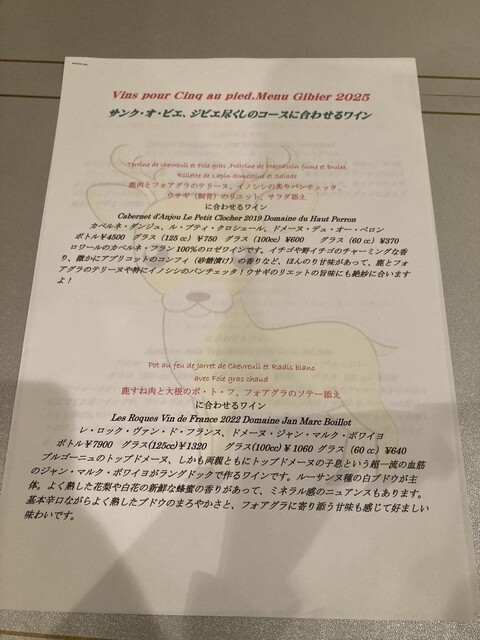 Vins pour Cinq au pied.Menu Gibier 2025
サンク・オ・ピエ、ジビエ尽くしのコースに合わせるワイン
Terrine de chevreuil et Foie gras ,Poitrine de Marcassin fumé et brulée,
Rillette de Lapin domestique et Salade
鹿肉とフォアグラのテリーヌ、イノシシの炙りパンチェッタ、
ウサギ（飼育）のリエット、サラダ添え
に合わせるワイン
Cabernet d'Anjou Le Petit Clocher 2019 Domaine du Haut Perron
カベルネ・ダンジュ、ル・プティ・クロシェール、ドメーヌ・デュ・オー・ペロン
ボトル¥4500 グラス（125 cc）¥750 グラス（100cc）¥600 グラス（60 cc）¥370
ロワールのカベルネ・フラン 100%のロゼワインです。イチゴや野イチゴのチャーミングな香
り、微かにアプリコットのコンフィ（砂糖漬け）の香りなど、ほんのり甘味があって、鹿とフォ
アグラのテリーヌや特にイノシシのパンチェッタ！ウサギのリエットの旨味にも絶妙に合います
よ！
Pot au feu de jarret de Chevreuil et Radis blanc
avec Foie gras chaud
鹿すね肉と大根のポ・ト・フ、フォアグラのソテー添え
に合わせるワイン
Les Roques Vin de France 2022 Domaine Jan Marc Boillot
レ・ロック・ヴァン・ド・フランス、ドメーヌ・ジャン・マルク・ボワイヨ
ボトル¥7900 グラス（125cc）¥1320 グラス（100cc）¥ 1060 グラス（60 cc）¥640
ブルゴーニュのトップドメーヌ、しかも両親ともにトップドメーヌの子息という超一流の血筋
のジャン・マルク・ボワイヨがラングドックで作るワインです。ルーサンヌ種の白ブドウが主
体。よく熟した花梨や白花の新鮮な蜂蜜の香りがあって、ミネラル感のニュアンスもあります。
基本辛口ながらよく熟したブドウのまろやかさと、フォアグラに寄り添う甘味も感じて好ましい
味わいです。